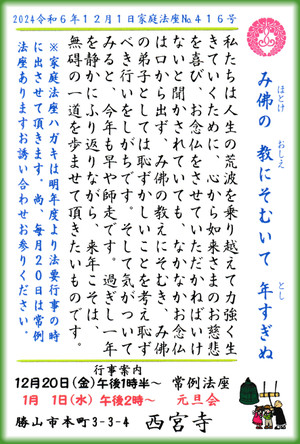 2024令和6年12月1日家庭法座№416号
み佛の 教にそむいて 年すぎぬ
ほとけ
おしえ
とし
私たちは人生の荒波を乗り越えて力強く生
きていくために、心から如来さまのお慈悲
を喜び、お念仏をさせていただかねばいけ
ないと聞かされていても、なかなかお念仏
は口から出ず、み佛の教えにそむき、み佛
の弟子としては恥ずかしいことを考え恥ず
べき行いをしがちです。そして気がついて
みると、今年も早や師走です。過ぎし一年
を静かにふり返りながら、来年こそは、
無碍の一道を歩ませて頂きたいものです。
※家庭法座ハガキは明年度より法要行事の時
に出させて頂きます。尚、毎月20日は常例
法座ありますお誘い合わせお参りください。
行事案内
12月20日(金)午後1時半~ 常例法座
1月 1日(水)午後2時~ 元旦会
勝山市本町3-3-4 西宮寺